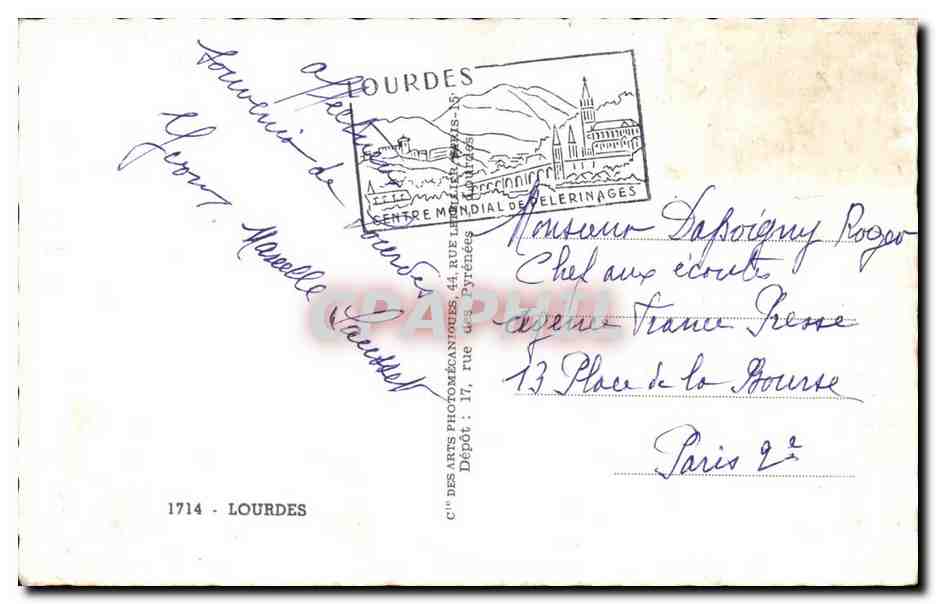 affectueux
souvenir de Lourdes
Marcelle
LOURDES
CENTRE MONDIAL DE PELERINAGES
Monsieur Dassoigny Roger
Chef aux écoutes
Agence France Presse
13 Place de la Bourse
Paris 2e
Cie DES ARTS PHOTOMÉCANIQUES, 44, RUE LETELLIER, PARIS-15
Dépôt : 17, rue des Pyrénées Lourdes
1714 - LOURDES
CPAPHIL